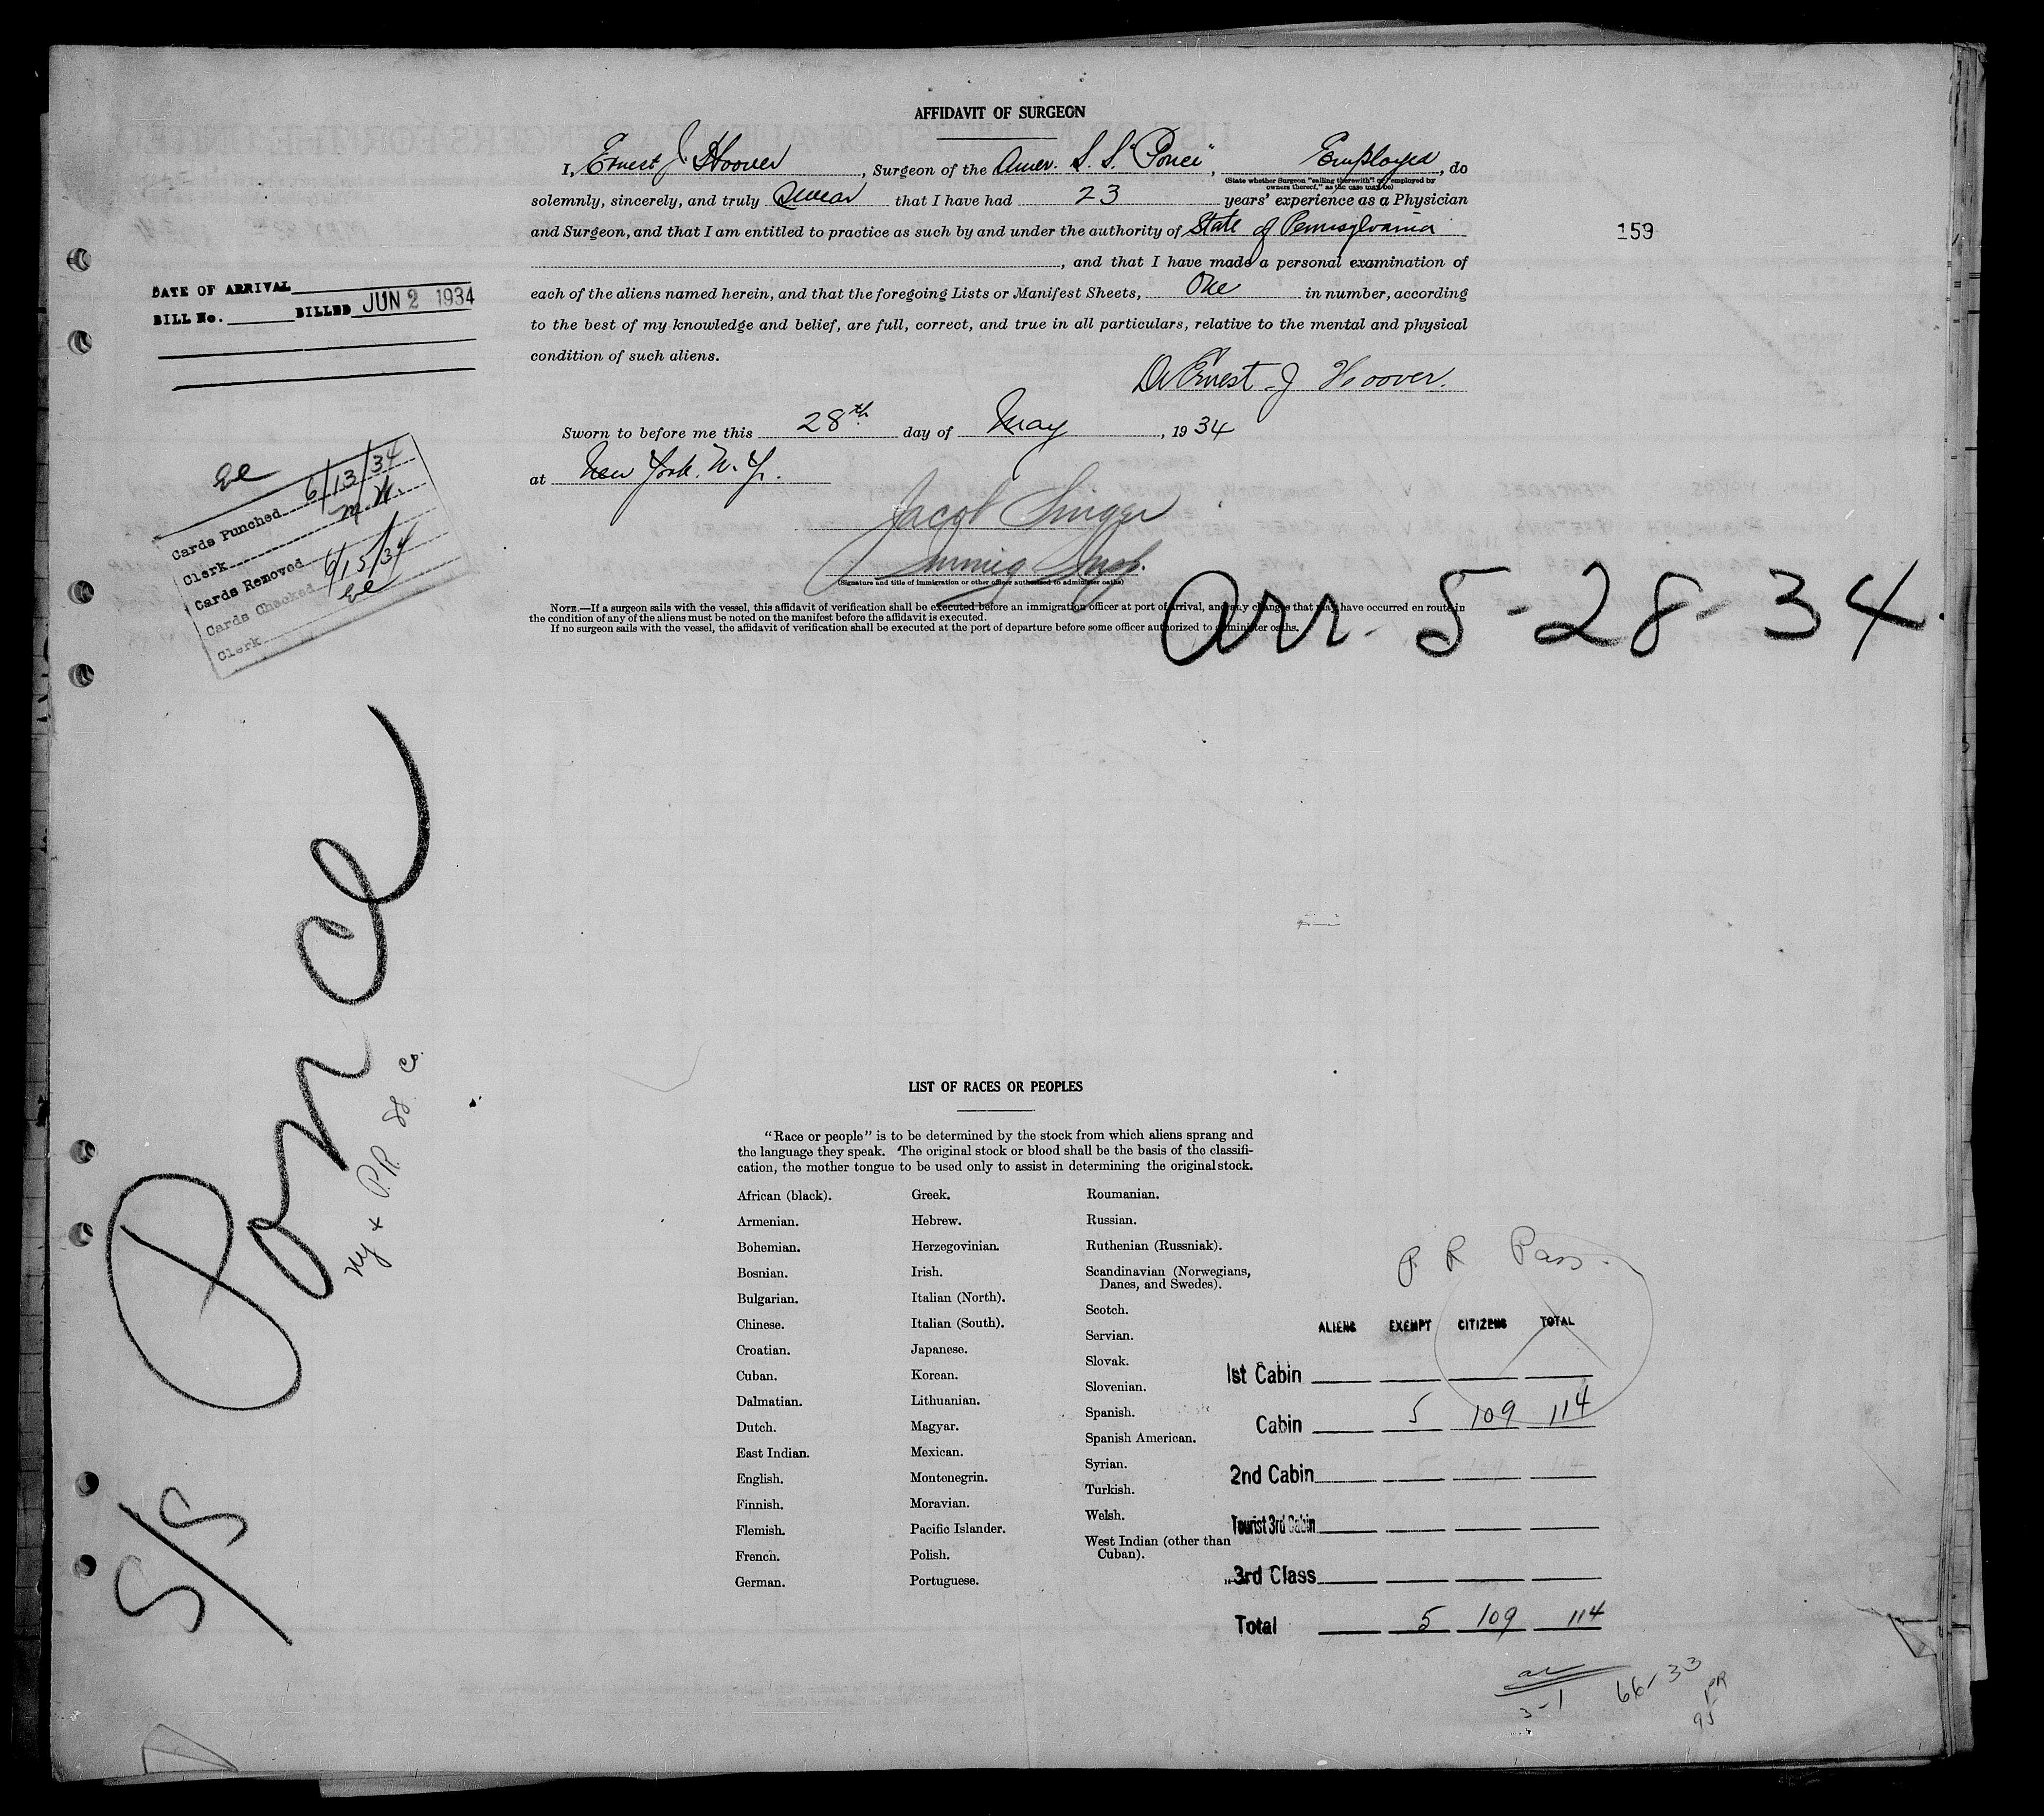 AFFIDAVIT OF SURGEON
I, Ernest J. Hoover, Surgeon of the Amer. S. S. "Ponce", Employed, do
(State whether Surgeon "sailing therewith" or "employed by
owners thereof," as the case may be)
solemnly, sincerely, and truly swear that I have had 23 years' experience as a Physician
and Surgeon, and that I am entitled to practice as such by and under the authority of State of Pennsylvania
159
, and that I have made a personal examination of
each of the aliens named herein, and that the foregoing Lists or Manifest Sheets, One in number, according
to the best of my knowledge and belief, are full, correct, and true in all particulars, relative to the mental and physical
condition of such aliens.
Dr Ernest J Hoover.
Sworn to before me this 28th day of May, 1934
at New York. N. Y.
Jacob Singer
Immig Insp.
(Signature and title of immigration or other officer authorized to administer oaths)
NOTE.—If a surgeon sails with the vessel, this affidavit of verification shall be executed before an immigration officer at port of arrival, and any changes that may have occurred en route in
the condition of any of the aliens must be noted on the manifest before the affidavit is executed.
If no surgeon sails with the vessel, the affidavit of verification shall be executed at the port of departure before some officer authorized to administer oaths.
Arr. 5-28-34.
DATE OF ARRIVAL
BILL No. BILLED JUN 2 1934
Cards Punched 6/13/34
Clerk M.H.
Cards Removed
Cards Checked 6/15/34
Clerk
S/S Ponce
NY + P.R. SS. Co.
LIST OF RACES OR PEOPLES
"Race or people" is to be determined by the stock from which aliens sprang and
the language they speak. The original stock or blood shall be the basis of the classifi-
cation, the mother tongue to be used only to assist in determining the original stock.
African (black).
Armenian.
Bohemian.
Bosnian.
Bulgarian.
Chinese.
Croatian.
Cuban.
Dalmatian.
Dutch.
East Indian.
English.
Finnish.
Flemish.
French.
German.
Greek.
Hebrew.
Herzegovinian.
Irish.
Italian (North).
Italian (South).
Japanese.
Korean.
Lithuanian.
Magyar.
Mexican.
Montenegrin.
Moravian.
Pacific Islander.
Polish.
Portuguese.
Roumanian.
Russian.
Ruthenian (Russniak).
Scandinavian (Norwegians,
Danes, and Swedes).
Scotch.
Servian.
Slovak.
Slovenian.
Spanish.
Spanish American.
Syrian.
Turkish.
Welsh.
West Indian (other than
Cuban).
P R Pass.
ALIENS EXEMPT CITIZENS TOTAL
1st Cabin
Cabin 5 109 114
2nd Cabin
Tourist 3rd Cabin
3rd Class
Total 5 109 114
3-1 66/33
PR
95